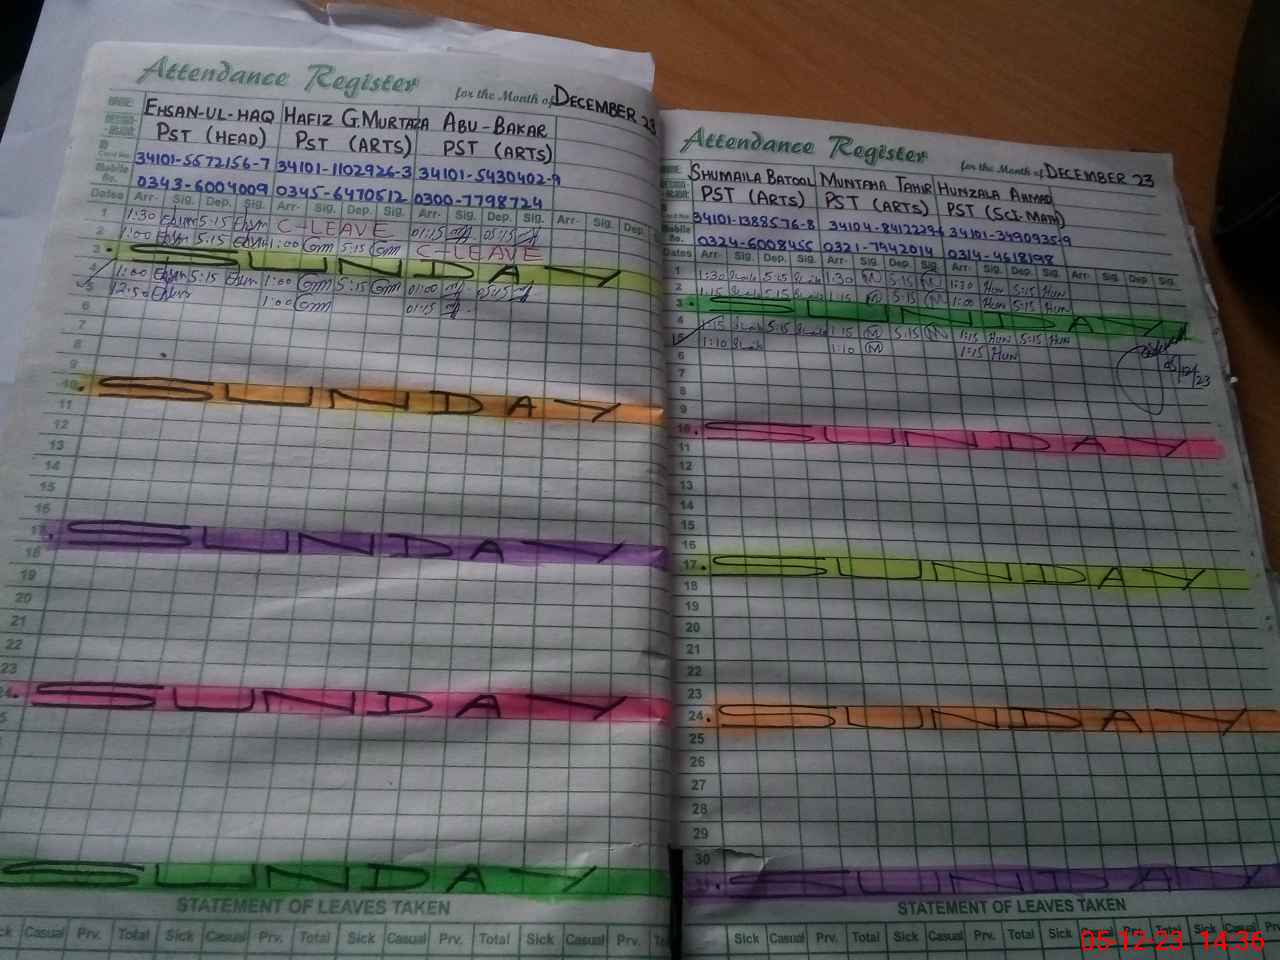 Attendance Register for the Month of DECEMBER 23
NAME EHSAN-UL-HAQ HAFIZ G.MURTAZA ABU-BAKAR
PST (HEAD) PST (ARTS) PST (ARTS)
34101-5572156-7 34101-1102926-3 34101-5430402-9
Mobile No. 0343-6004009 0345-6470512 0300-7798724
Dates Arr- Sig. Dep. Sig. Arr- Sig. Dep. Sig. Arr- Sig. Dep. Sig. Arr- Sig. Dep.
1 1:30 5:15 C-LEAVE 01:15 05:15
2 1:00 5:15 1:00 5:15 C-LEAVE
3. SUNDAY
4 1:00 5:15 1:00 5:15 01:00 05:15
5 12:50 1:00 01:15
6
7
8
9
10. SUNDAY
11
12
13
14
15
16
17. SUNDAY
18
19
20
21
22
23
24. SUNDAY
SUNDAY
STATEMENT OF LEAVES TAKEN
Sick Casual Prv. Total Sick Casual Prv. Total Sick Casual Prv.
Attendance Register for the Month of DECEMBER 23
SHUMAILA BATOOL MUNTAHA TAHIR HUNZALA AHMAD
PST (ARTS) PST (ARTS) PST (SCI-MATH)
34101-1388576-8 34104-8412229-6 34101-3490935-9
Mobile No. 0324-6008455 0321-7942014 0314-4618198
Dates Arr- Sig. Dep. Sig. Arr- Sig. Dep. Sig. Arr- Sig. Dep. Sig. Arr- Sig. Dep. Sig.
1 1:30 5:15 1:30 M 5:15 M 1:30 HUN 5:15 HUN
2 1:15 5:15 1:15 M 5:15 M 1:00 HUN 5:15 HUN
3. SUNDAY
4 1:15 5:15 1:15 M 5:15 M 1:15 HUN 5:15 HUN
5 1:10 1:10 M 1:15 HUN
05/12/23
6
7
8
9
10. SUNDAY
11
12
13
14
15
16
17. SUNDAY
18
19
20
21
22
23
24. SUNDAY
25
26
27
28
29
30
SUNDAY
STATEMENT OF LEAVES TAKEN
Sick Casual Prv. Total Sick Casual Prv. Total Sick Casual Prv. Total Sick Casual Prv. Total
05-12-23 14:36